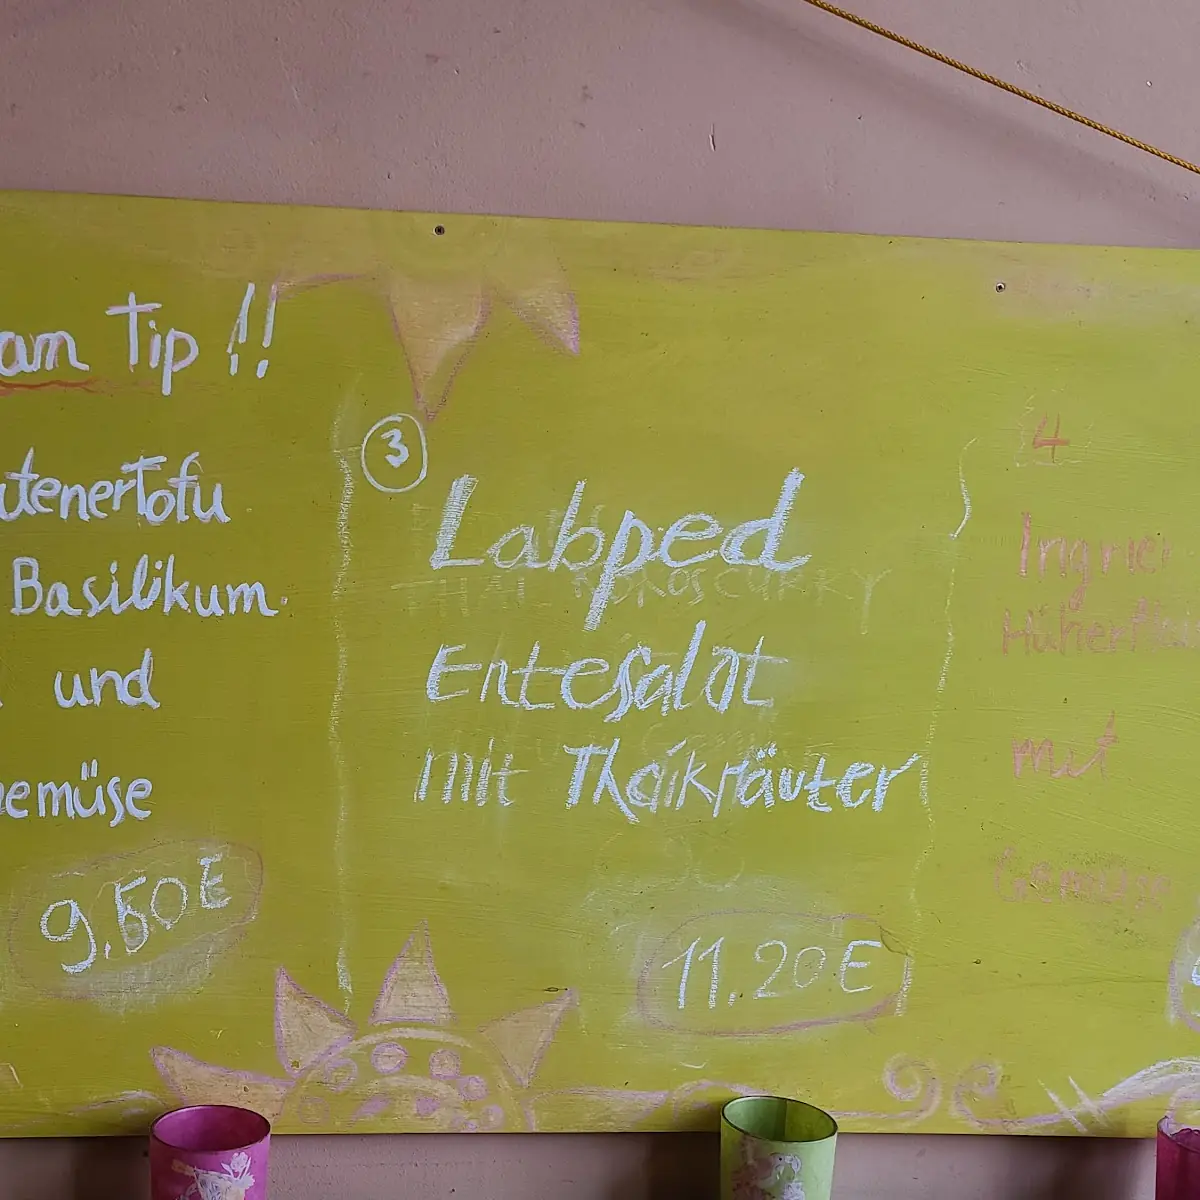 am Tip !!
utenerTofu
Basilikum.
und
gemüse
9.50E
3
Labped
THAI KOKOSCURRY
Entesalat
mit Thaikräuter
11.20E
4
mit
Gemüse